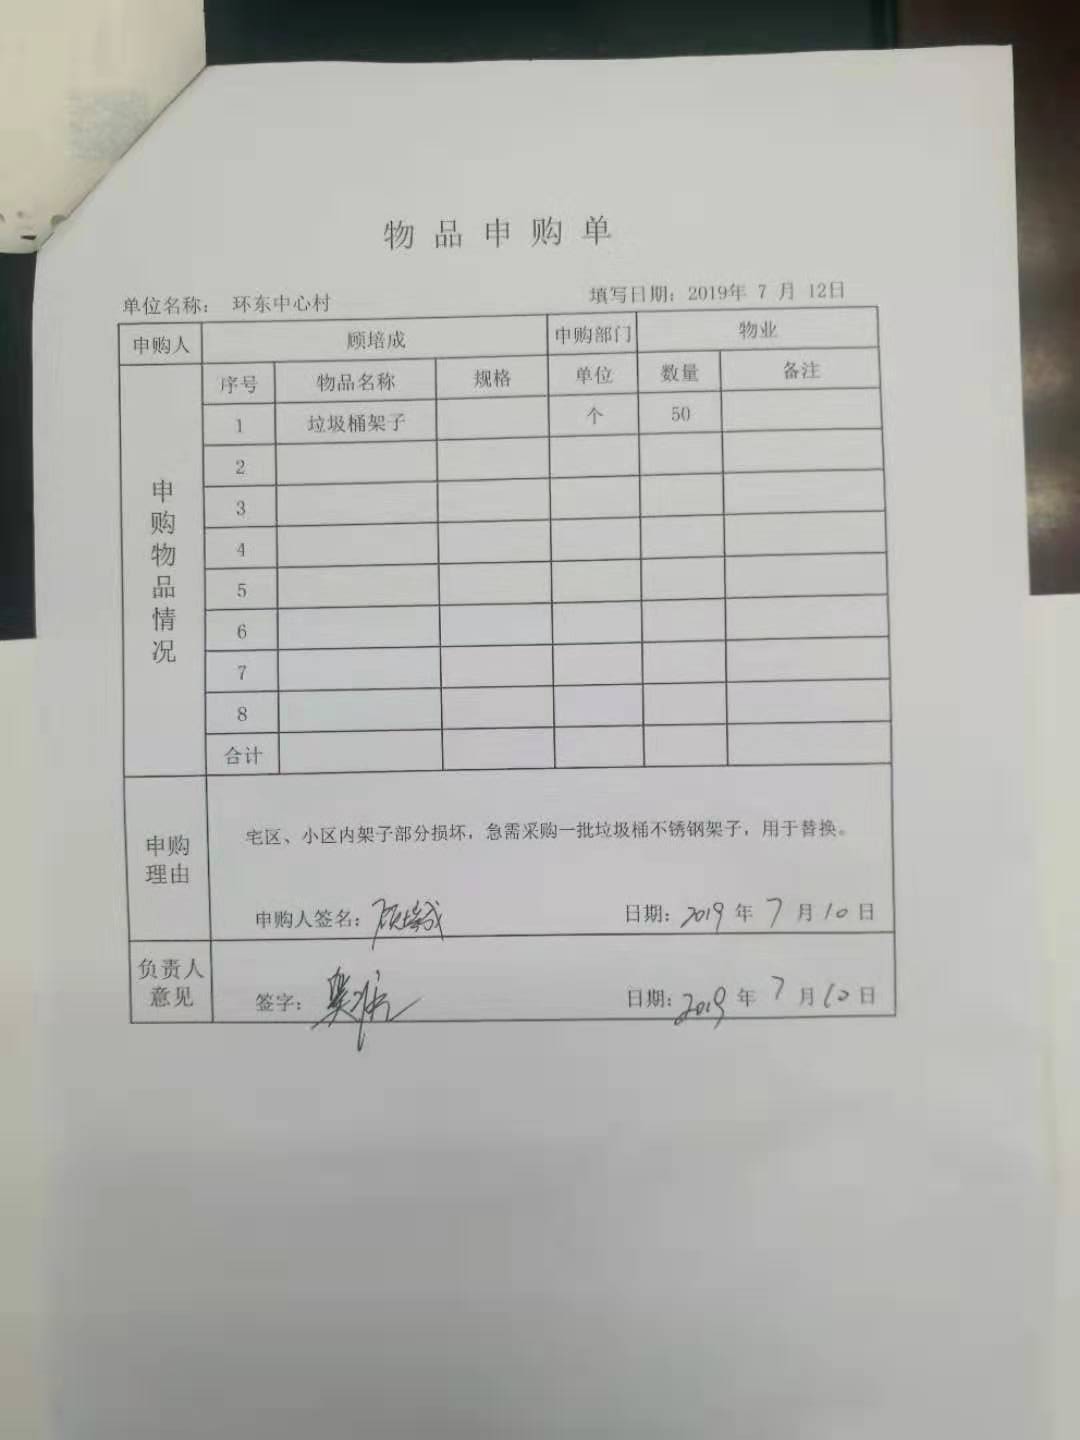 物品申购单
单位名称： 环东中心村 填写日期：2019年 7 月 12日
申购人 顾培成 申购部门 物业
申购物品情况
序号 物品名称 规格 单位 数量 备注
1 垃圾桶架子 个 50
2
3
4
5
6
7
8
合计
申购理由
宅区、小区内架子部分损坏，急需采购一批垃圾桶不锈钢架子，用于替换。
申购人签名：顾培成 日期：2019 年 7 月 10 日
负责人意见
签字： 日期：2019 年 7 月 10 日